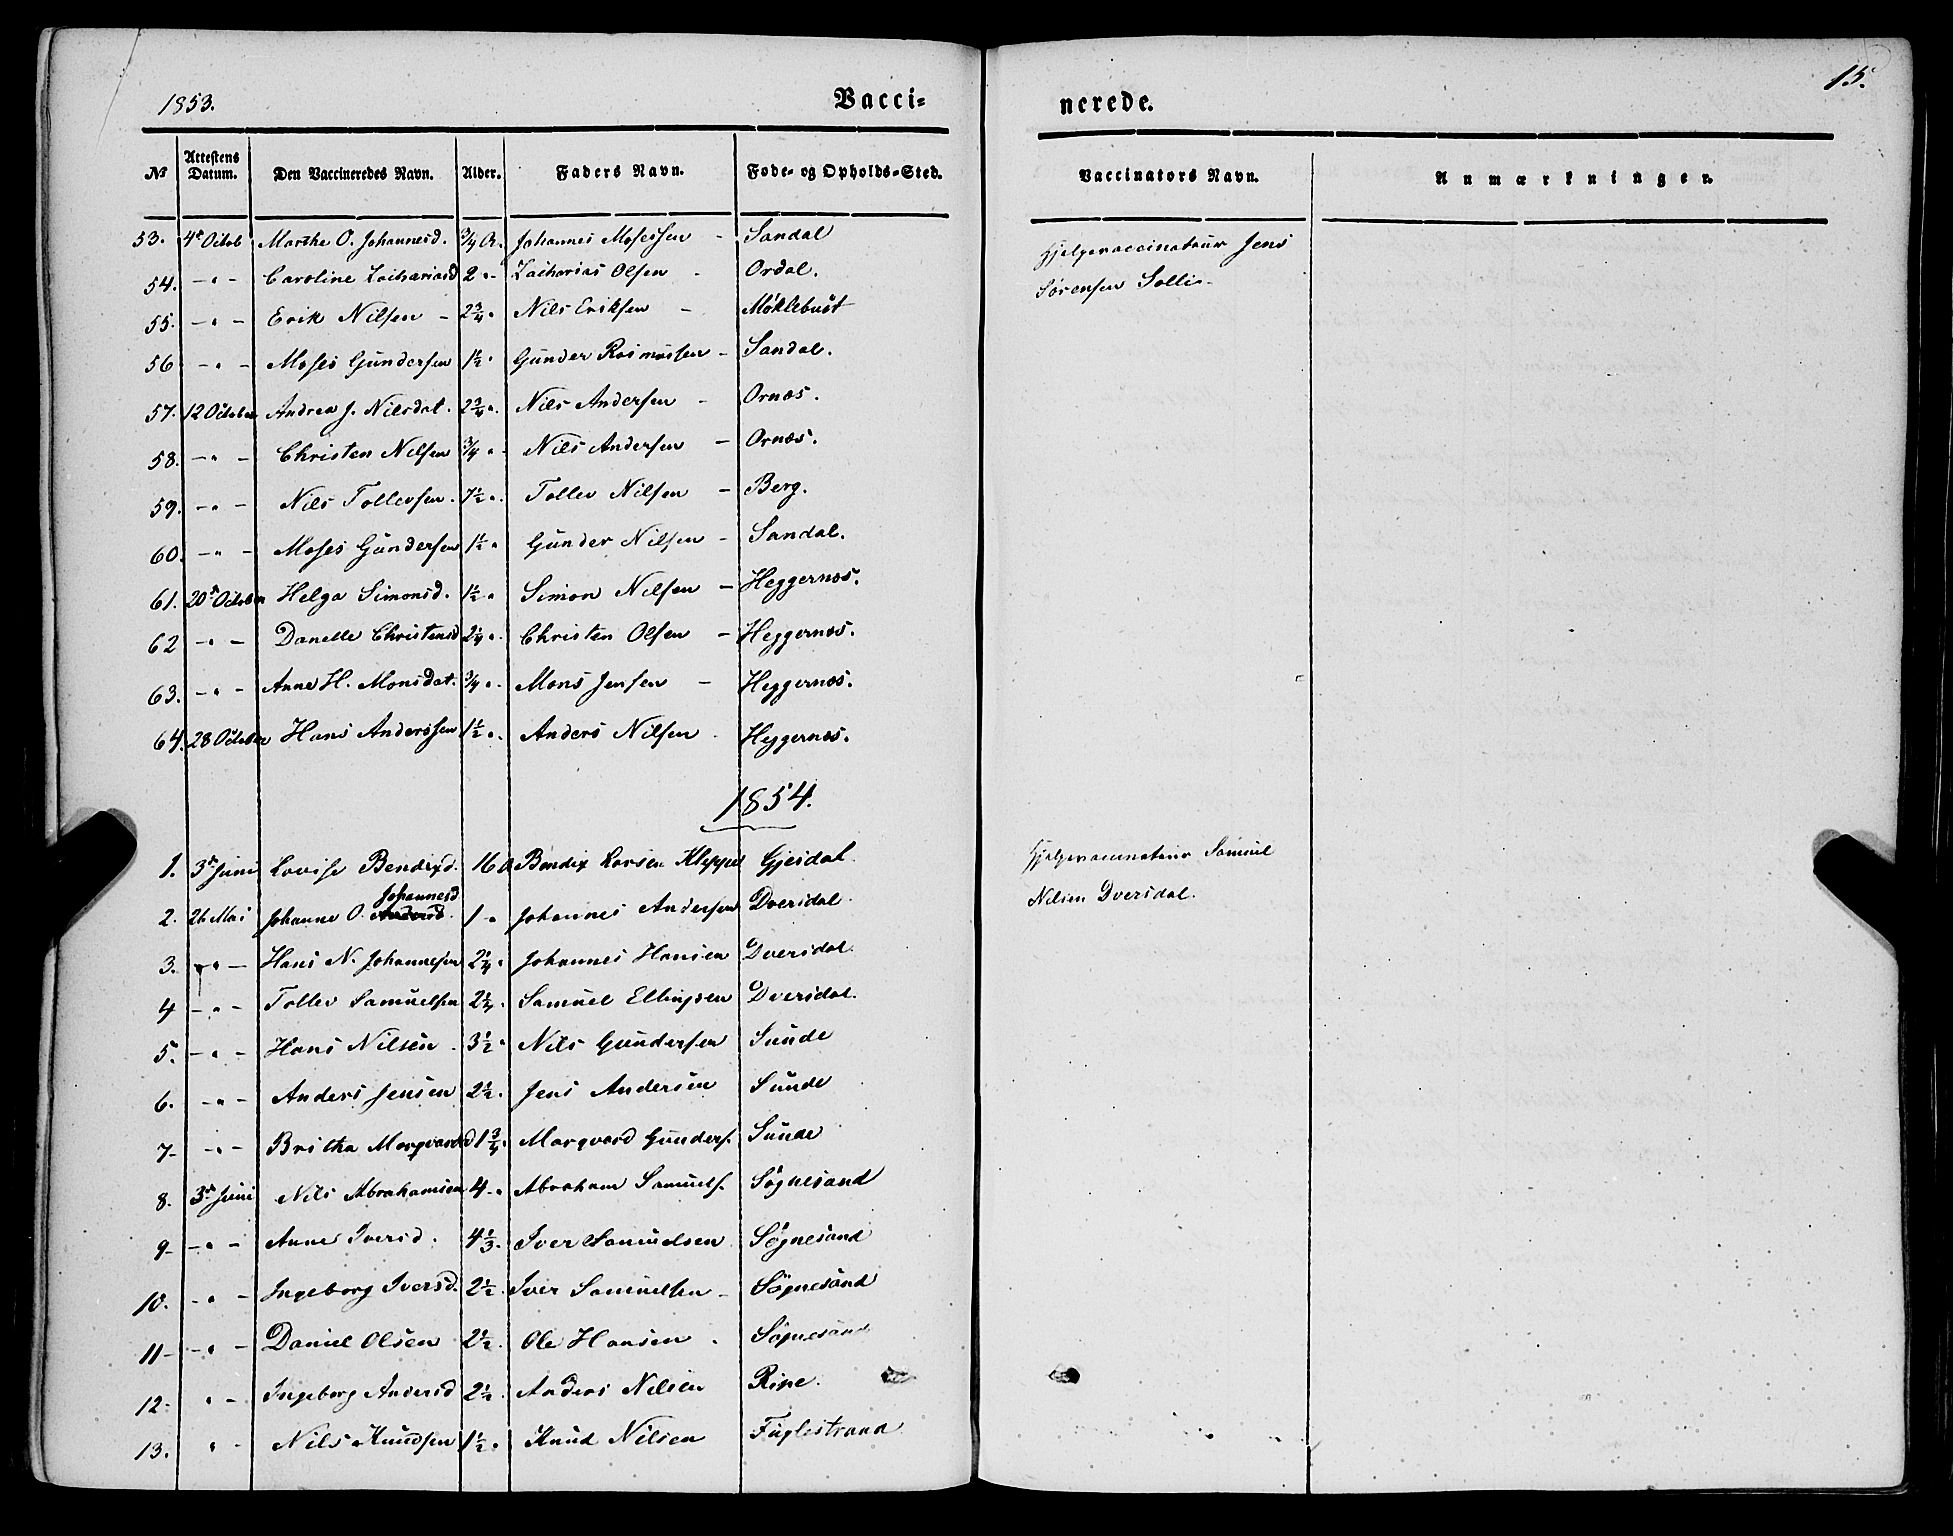 1853.
Vacci-
nerede.
15.
No Attestens Datum. Den Vaccineredes Navn. Alder. Faders Navn. Føde- og Opholds-Sted. Vaccinators Navn. Anmærkninger.
53. 4de Octob Marthe O. Johannesd. 3/4 Johannes Mosessen - Sandal Hjelpevaccinateur Jens
54. -"- Caroline Zachariasd 2 "- Zacharias Olsen - Ordal. Sørensen Sollie
55. -"- Erik Nilsen - 2 3/4 " Nils Eriksen - Møklebust
56 -"- Moses Gundersen 1 1/2 " Gunder Rasmussen - Sandal.
57. 12 October Andrea J. Nilsdat. 2 3/4 " Nils Andersen - Ornæs.
58. -"- Christen Nilsen 3/4 " Nils Andersen - Ornæs.
59. -"- Nils Tollevsen. 7 1/2 " Tollev Nilsen - Berg.
60. -"- Moses Gundersen 1 1/2 " Gunder Nilsen - Sandal.
61. 20de October Helga Simonsd. 1 1/2 " Simon Nilsen - Heggernæs.
62 -"- Danelle Christensd 2 1/4 " Christen Olsen - Heggernæs.
63. -"- Anne H. Monsdat. 3/4 " Mons Jensen - Heggernæs.
64. 28 October Hans Anderssen 1 1/2 " Anders Nilsen - Heggernæs.
1854.
1. 3de Juni Lovise Bendixd. 16 Bendix Larsen Kleppe Gjesdal. Hjelpevaccinateur Samuel
Johannesd
2. 26 Mai Johanne O. Andersd. 1 " Johannes Andersen Dversdal. Nilsen Dversdal.
3. "- Hans N. Johannesen 2 1/4 " Johannes Hansen Dversdal.
4 -"- Tollev Samuelsen 2 1/4 " Samuel Ellingsen Dversdal.
5. -"- Hans Nilsen - 3 1/2 " Nils Gundersen Sunde
6. -"- Anders Jensen 2 1/2 " Jens Andersen Sunde
7- -"- Britha Marqvardsd 1 3/4 " Marqvard Gunders. Sunde
8. 3de Juni Nils Abrahamsen 4 - " Abraham Samuels. Søgnesand
9- -"- Anne Iversd. 4 1/3 " Iver Samuelsen Søgnesand
10. -"- Ingeborg Iversd. 2 1/2 " Iver Samuelsen - Søgnesand
11- -"- Daniel Olsen 2 1/2 " Ole Hansen - Søgnesand
12- "- Ingeborg Andersd 2 1/2 " Anders Nilsen Ripe.
13. "- Nils Knudsen 1 1/2 " Knud Nilsen Fuglestrand